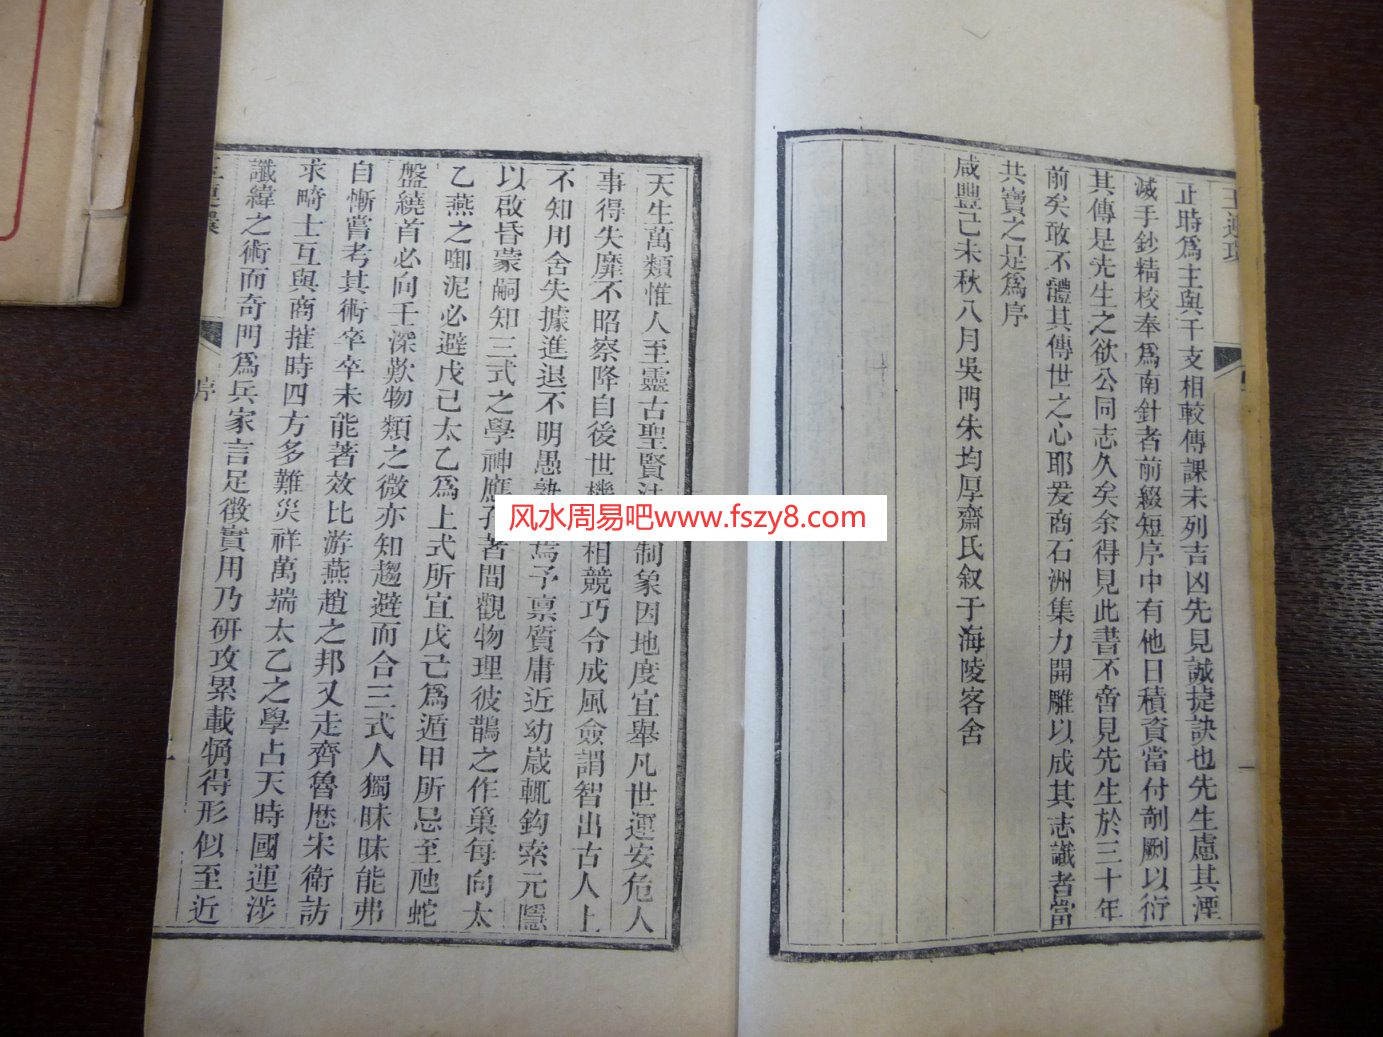 止時爲主與干支相較傳課未列吉凶先見誠捷訣也先生慮其湮
滅手鈔精校奉爲南針者前綴短序中有他日積資當付剞劂以衍
其傳是先生之欲公同志久矣余得見此書不啻見先生於三十年
前矣敢不體其傳世之心耶爰商石洲集力開雕以成其志識者當
共寶之是爲序
咸豐己未秋八月吳門朱均厚齋氏叙于海陵客舍
天生萬類惟人至靈古聖賢法制象因地度宜舉凡世運安危人
事得失靡不昭察降自後世機相競巧令成風僉謂智出古人上
不知用舍失據進退不明愚孰焉予禀質庸近幼嵗輒鈎索元隱
以啟昏蒙嗣知三式之學神應孔著閒觀物理彼鵲之作巢每向太
乙燕之啣泥必避戊己太乙爲上式所宜戊己爲遁甲所忌至虺蛇
盤繞首必向壬深歎物類之微亦知趨避而合三式人獨昧昧能弗
自慚嘗考其術卒卒未能著效比游燕趙之邦又走齊魯歷宋衛訪
求畸士互與商搉時四方多難災祥萬端太乙之學占天時國運涉
讖緯之術而奇門爲兵家言足徵實用乃研攻累載犓得形似至近
序
风水周易吧www.fszy8.com